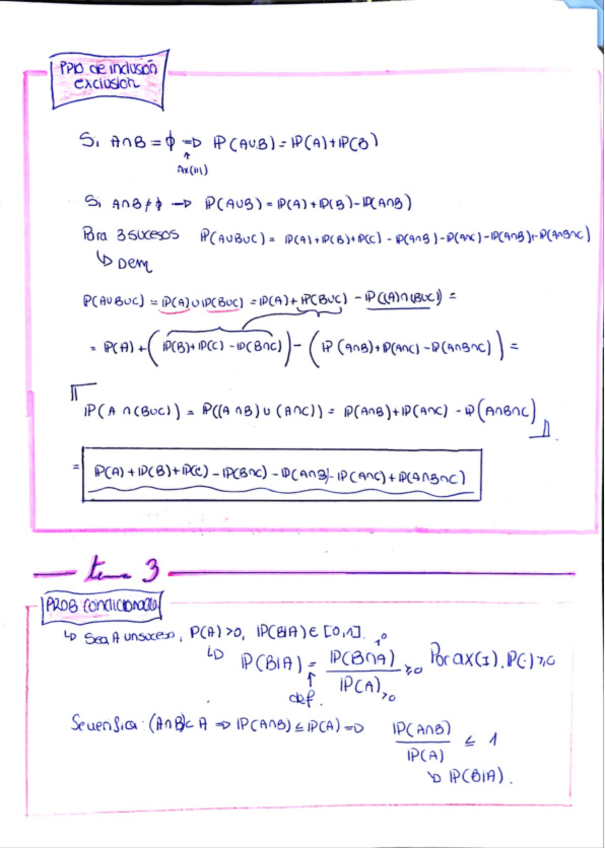 PPIO de inclusión
exclusión
Si A∩B = ϕ ⇒ IP(A∪B) = IP(A)+IP(B)
↑
Ax(III)
Si A∩B ≠ ϕ → IP(A∪B) = IP(A)+IP(B)-IP(A∩B)
Para 3 sucesos IP(A∪B∪C) = IP(A)+IP(B)+IP(C) - IP(A∩B) - IP(A∩C) - IP(A∩B)+IP(A∩B∩C)
↳ Dem
IP(A∪B∪C) = IP(A)∪IP(B∪C) = IP(A)+IP(B∪C) - IP((A)∩(B∪C)) =
= IP(A)+(IP(B)+IP(C)-IP(B∩C)) - (IP(A∩B)+IP(A∩C)-IP(A∩B∩C)) =
IP(A∩(B∪C)) = IP((A∩B)∪(A∩C)) = IP(A∩B)+IP(A∩C) - IP(A∩B∩C)
= IP(A)+IP(B)+IP(C)-IP(B∩C)-IP(A∩B)-IP(A∩C)+IP(A∩B∩C)
tema 3
PROB condicionada
↳ Sea A un suceso, P(A)>0, IP(B|A) ∈ [0,1].
↳ IP(B|A) = IP(B∩A) / IP(A) ≥0 Por ax(I). IP(·) ≥0
↑ >0
def.
Se verifica: (A∩B)⊂A ⇒ IP(A∩B) ≤ IP(A) ⇒ IP(A∩B) / IP(A) ≤ 1
↳ IP(B|A).